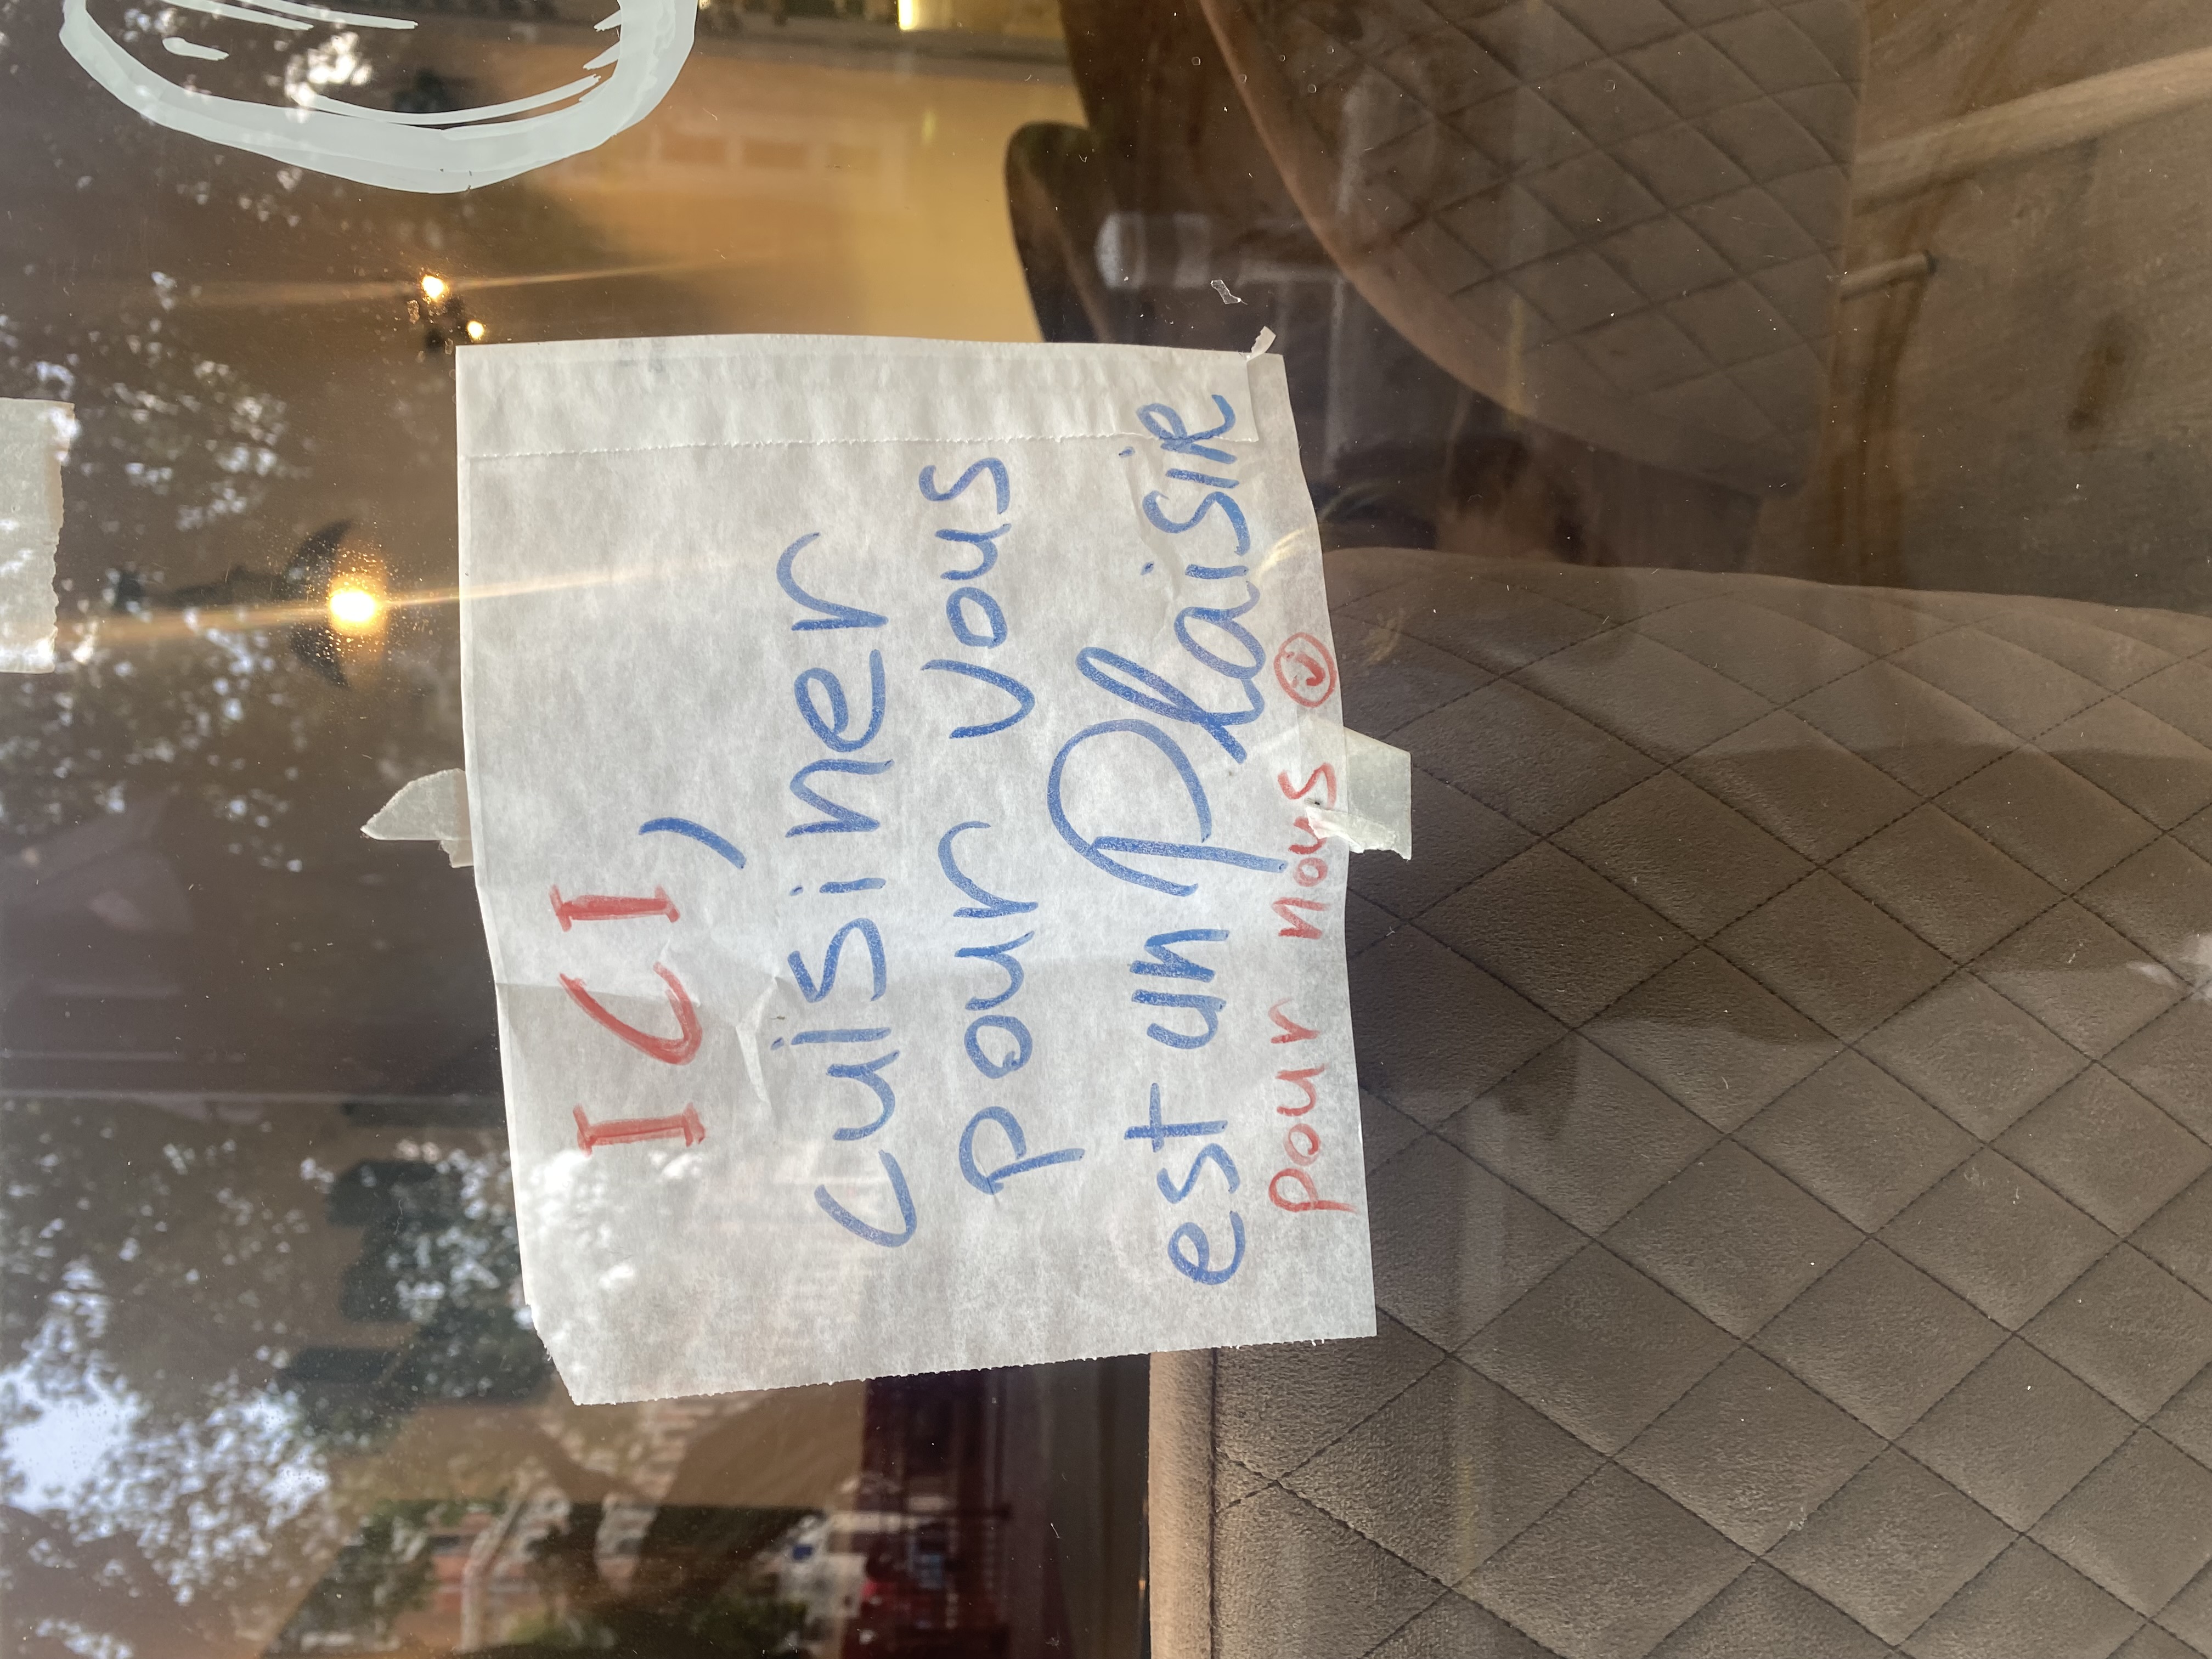 ICI,
cuisiner
pour vous
est un Plaisir
pour nous ☺